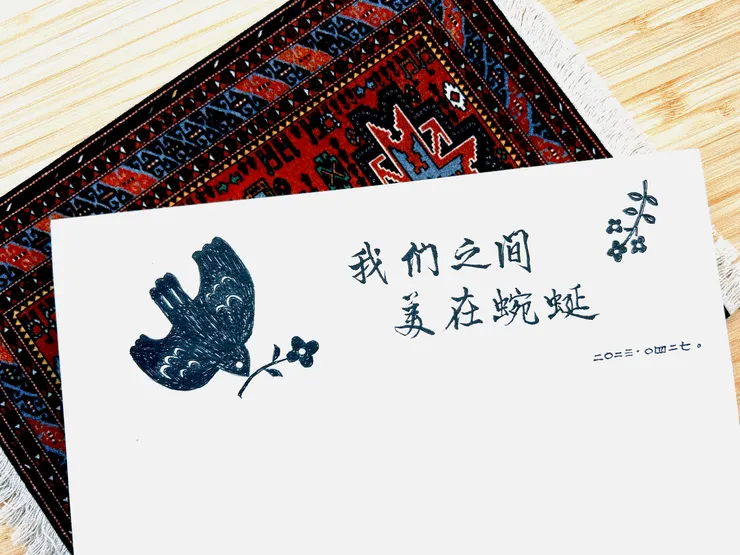 我们之间
美在蜿蜒
二〇二三·〇四二七。